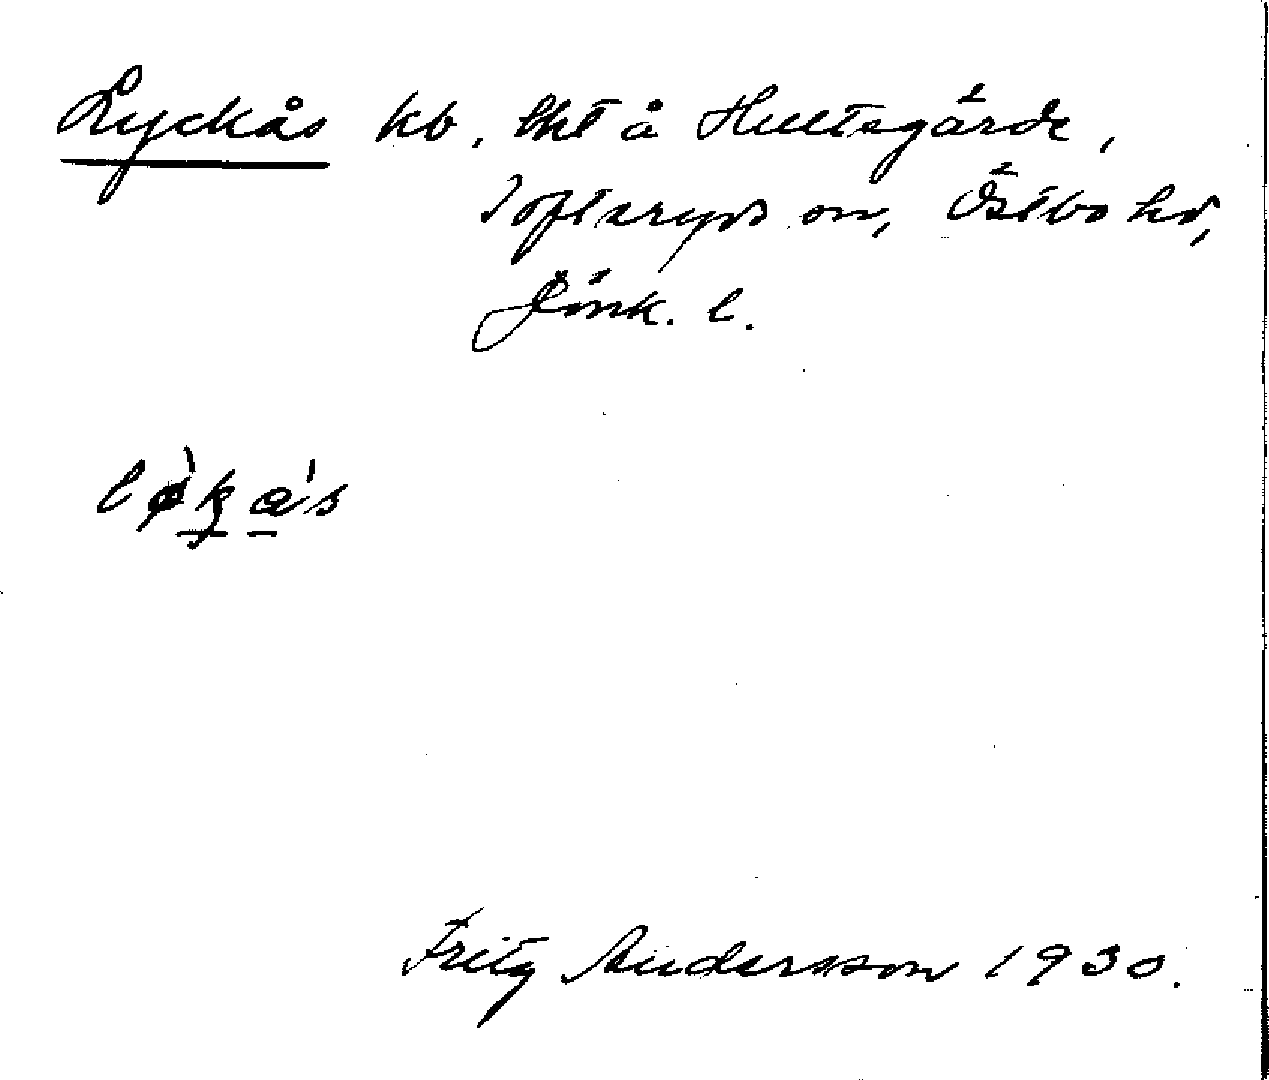 Lyckås kb, tht å Hultsgärde,
Tofteryds sn, Östbo hd,
Jönk. l.
Fritz Andersson 1930.